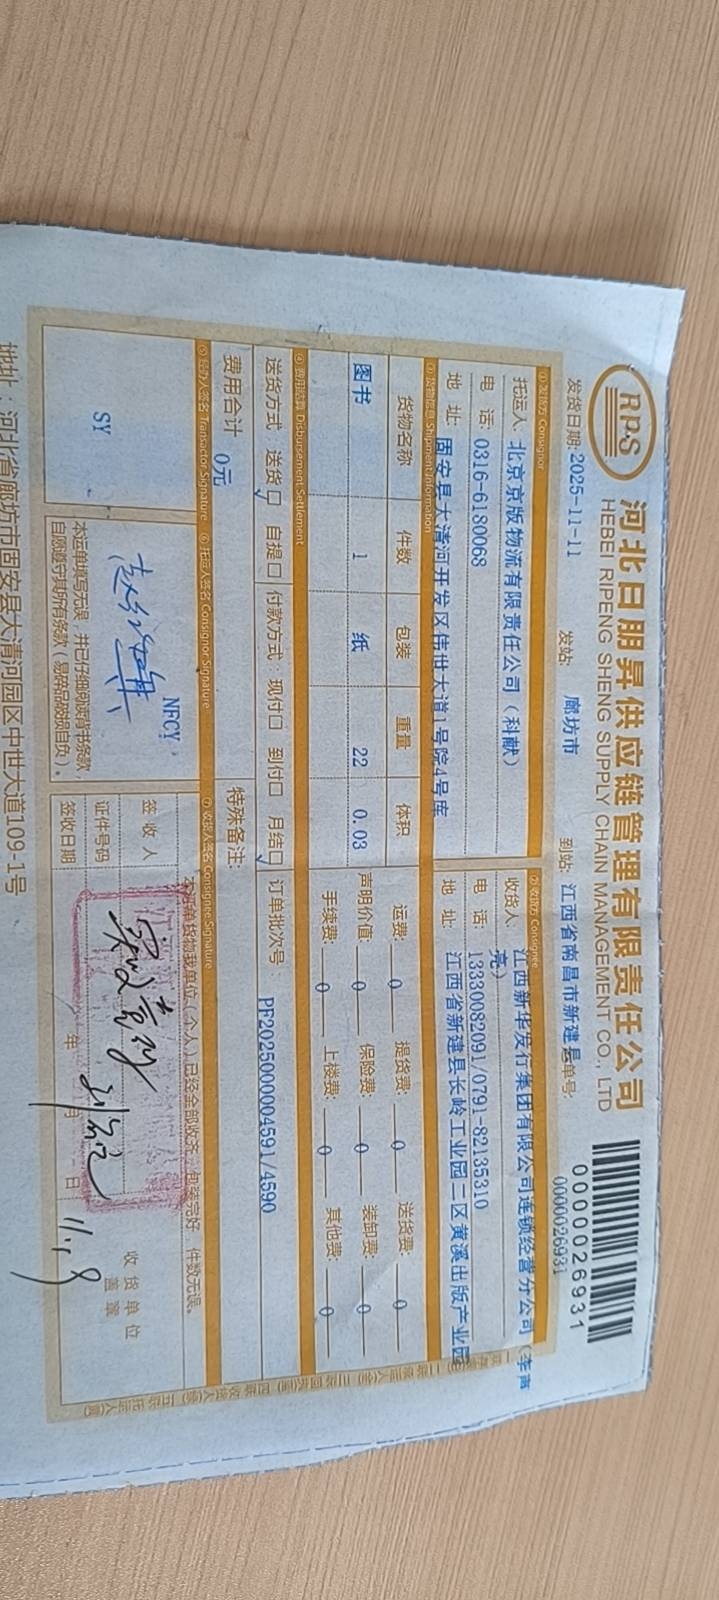 RPS
河北日朋昇供应链管理有限责任公司
HEBEI RIPENG SHENG SUPPLY CHAIN MANAGEMENT CO., LTD
0000026931
发货日期:2025-11-11 发站: 廊坊市 到站: 江西省南昌市新建县 单号: 0000026931
①发货方 Consignor
②收货方 Consignee
托运人 北京京版物流有限责任公司（科献）
收货人 江西新华发行集团有限公司连锁经营分公司（李声亮）
电 话: 0316-6180068
电话: 13330082091/0791-82135310
地 址: 固安县大清河开发区伟世大道1号院4号库
地 址: 江西省新建县长岭工业园二区黄溪出版产业园
③货物信息 Shipment Information
货物名称 件数 包装 重量 体积
运费: 0 提货费: 0 送货费: 0
图书 1 纸 22 0.03
声明价值: 0 保险费: 0 装卸费: 0
手续费: 0 上楼费: 0 其他费: 0
④费用结算 Disbursement Settlement
送货方式: 送货口✓ 自提口 付款方式: 现付口 到付口 月结口✓ 订单批次号: PF2025000004591/4590
费用合计 0元 特殊备注:
⑤经办人签名 Transactor Signature ⑥托运人签名 Consignor Signature ⑦收货人签名 Consignee Signature
本运单货物我单位(个人)已经全部收齐，包装完好，件数无误。
SY
NFCY
签 收 人
证件号码
签收日期 年 月 日
收货单位
盖章
本运单填写无误，并已仔细阅读背书条款，
自愿遵守其所有条款（易碎品破损自负）。
地址：河北省廊坊市固安县大清河园区中世大道109-1号